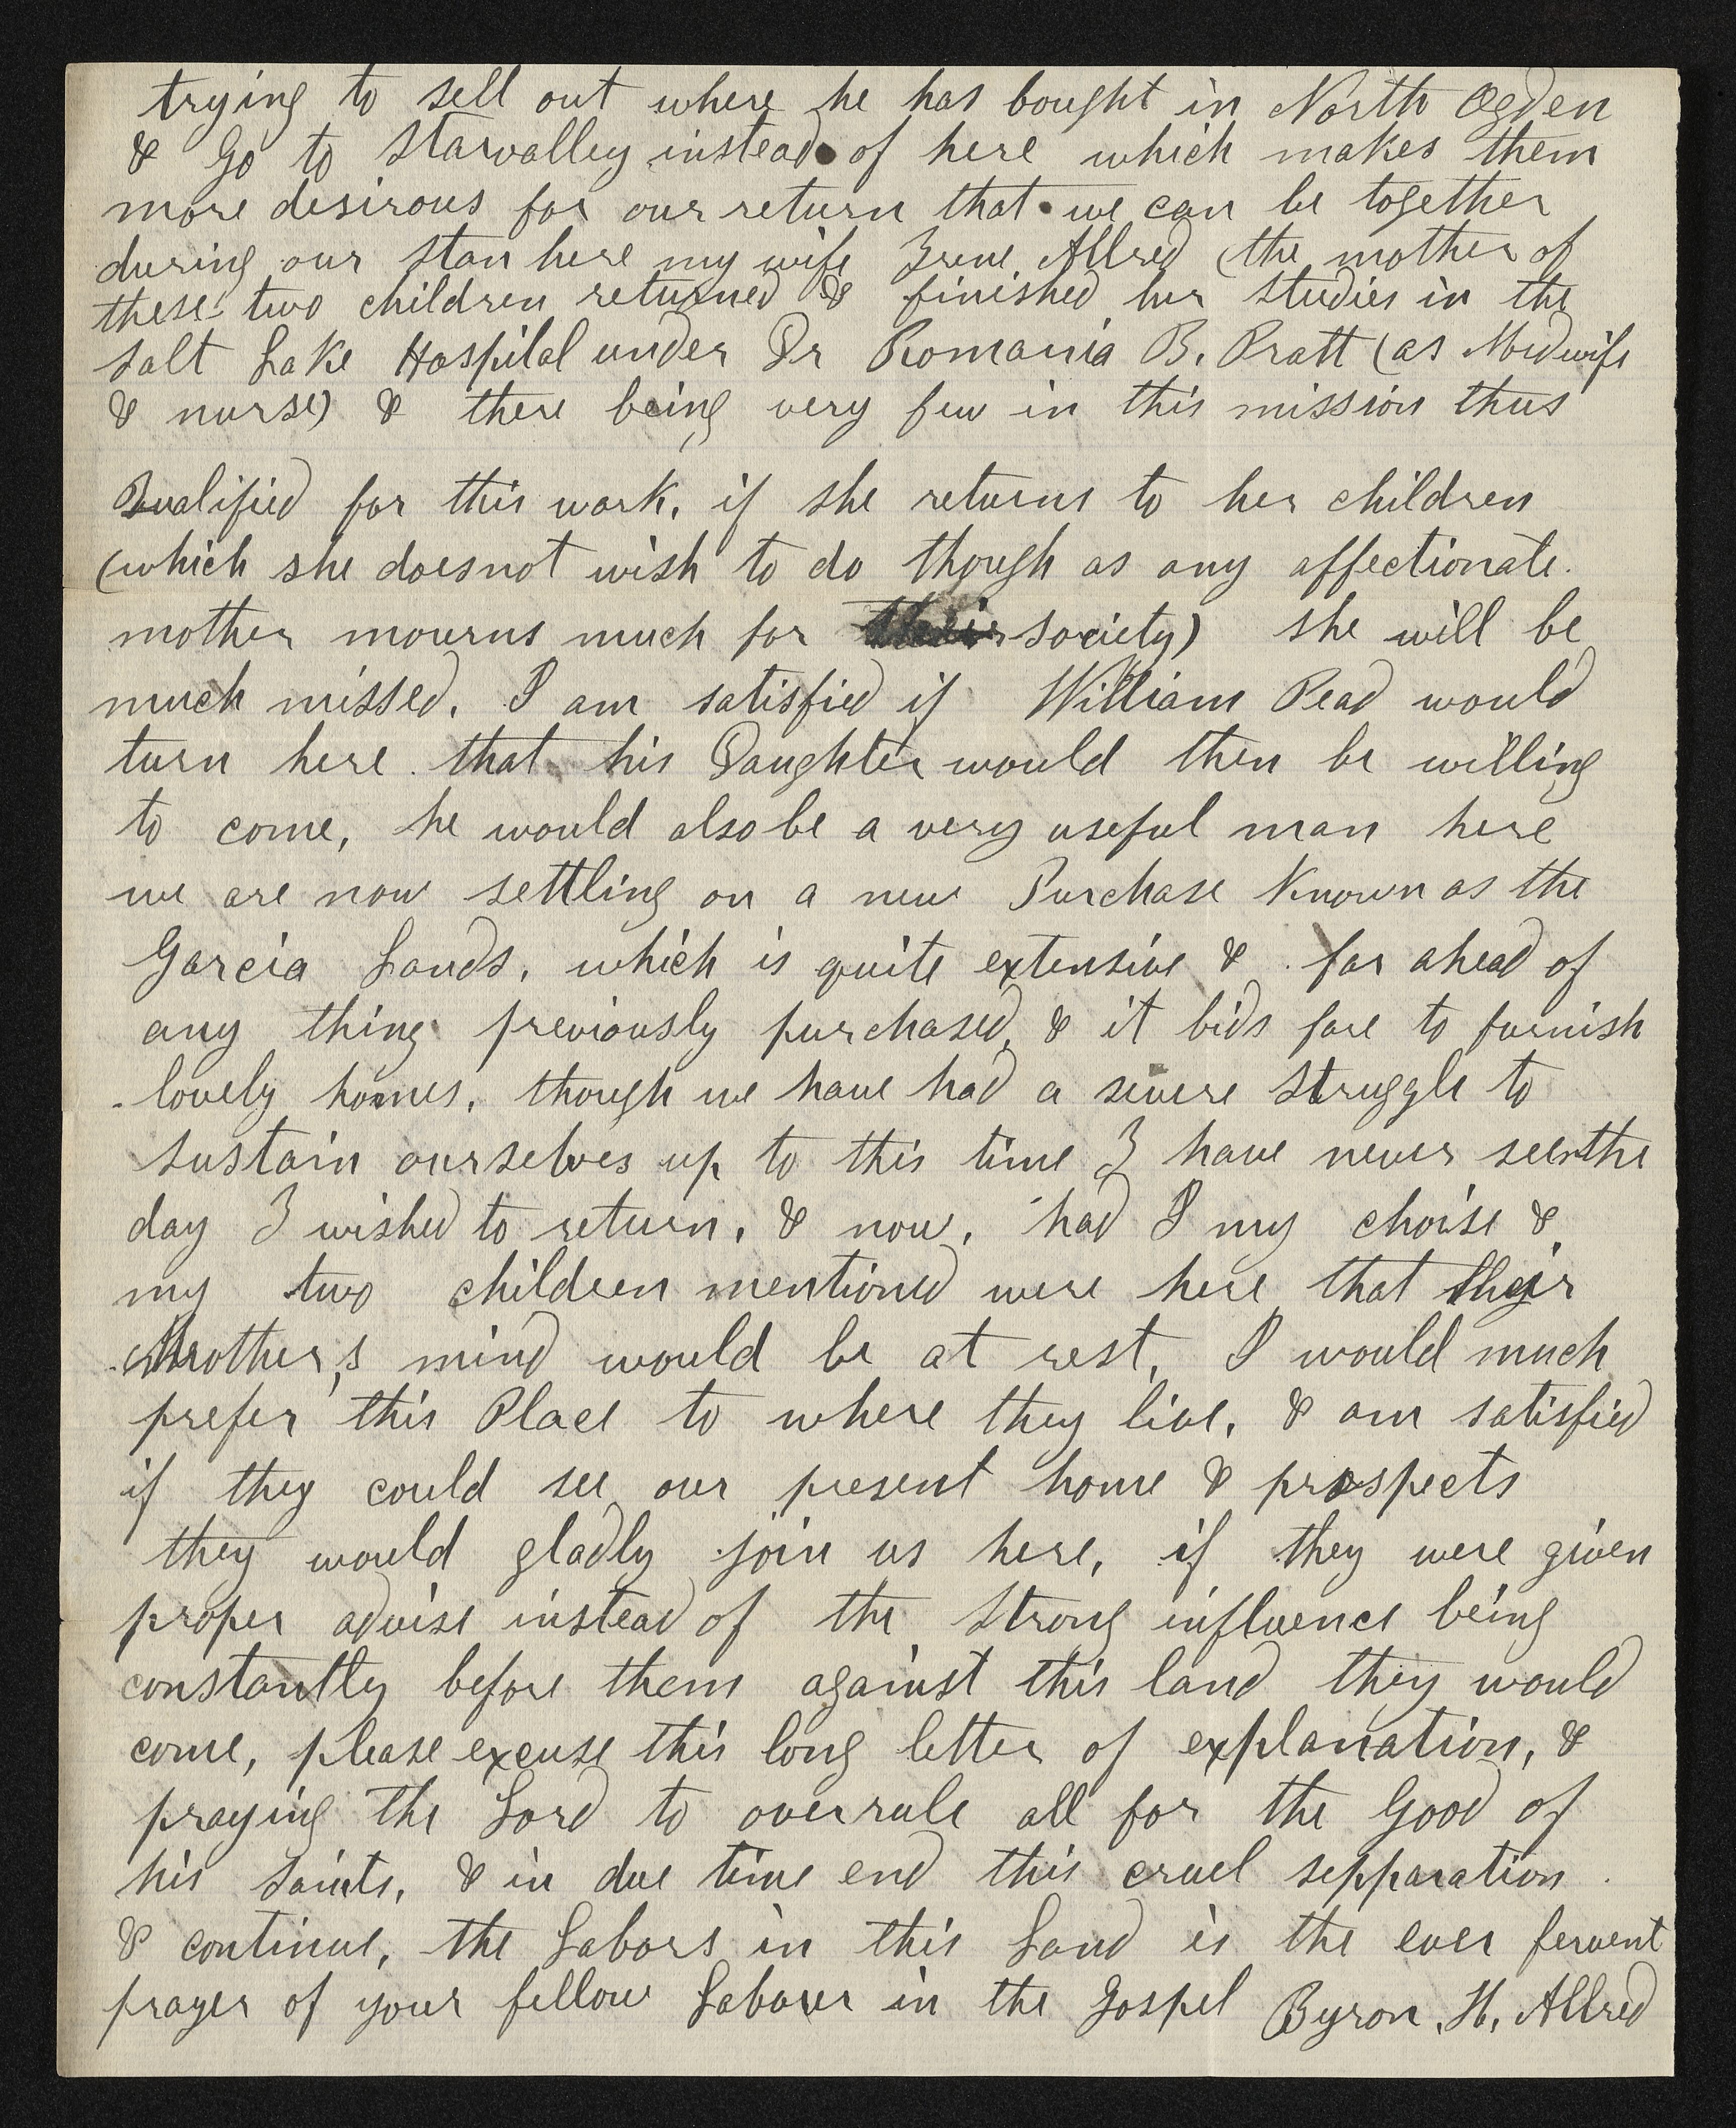 trying to sell out where he has bought in North Ogden
& Go to Starvalley instead of here which makes them
more desirous for our return that we can be together
during our stan here my wife Irene Allred (the mother of
these two children returned & finished her studies in the
Salt Lake Hospital under Dr Romania B. Pratt (as Midwife
& nurse) & there being very few in this mission thus
Qualified for this work, if she returns to her children
(which she does not wish to do though as any affectionate.
mother mourns much for their society) she will be
much missed. I am satisfied if William Read would
turn here that his Daughter would then be willing
to come, he would also be a very useful man here
we are now settling on a new Purchase Known as the
Garcia Lands, which is quite extensive & far ahead of
any thing previously purchased, & it bids fare to furnish
lovely homes, though we have had a severe struggle to
sustain ourselves up to this time I have never seen the
day I wished to return, & now, had I my choise &
my two children mentioned were here that their
Mother,s mind would be at rest, I would much
prefer this Place to where they live, & am satisfied
if they could see our present home & prospects
they would gladly join us here, if they were given
proper advise instead of the strong influence being
constantly before them against this land they would
come, please excuse this long letter of explanation, &
praying the Lord to overrule all for the Good of
his Saints, & in due time end this cruel sepparation
& continue, the Labors in this Land is the ever fervent
prayer of your fellow Laborer in the Gospel Byron, H, Allred